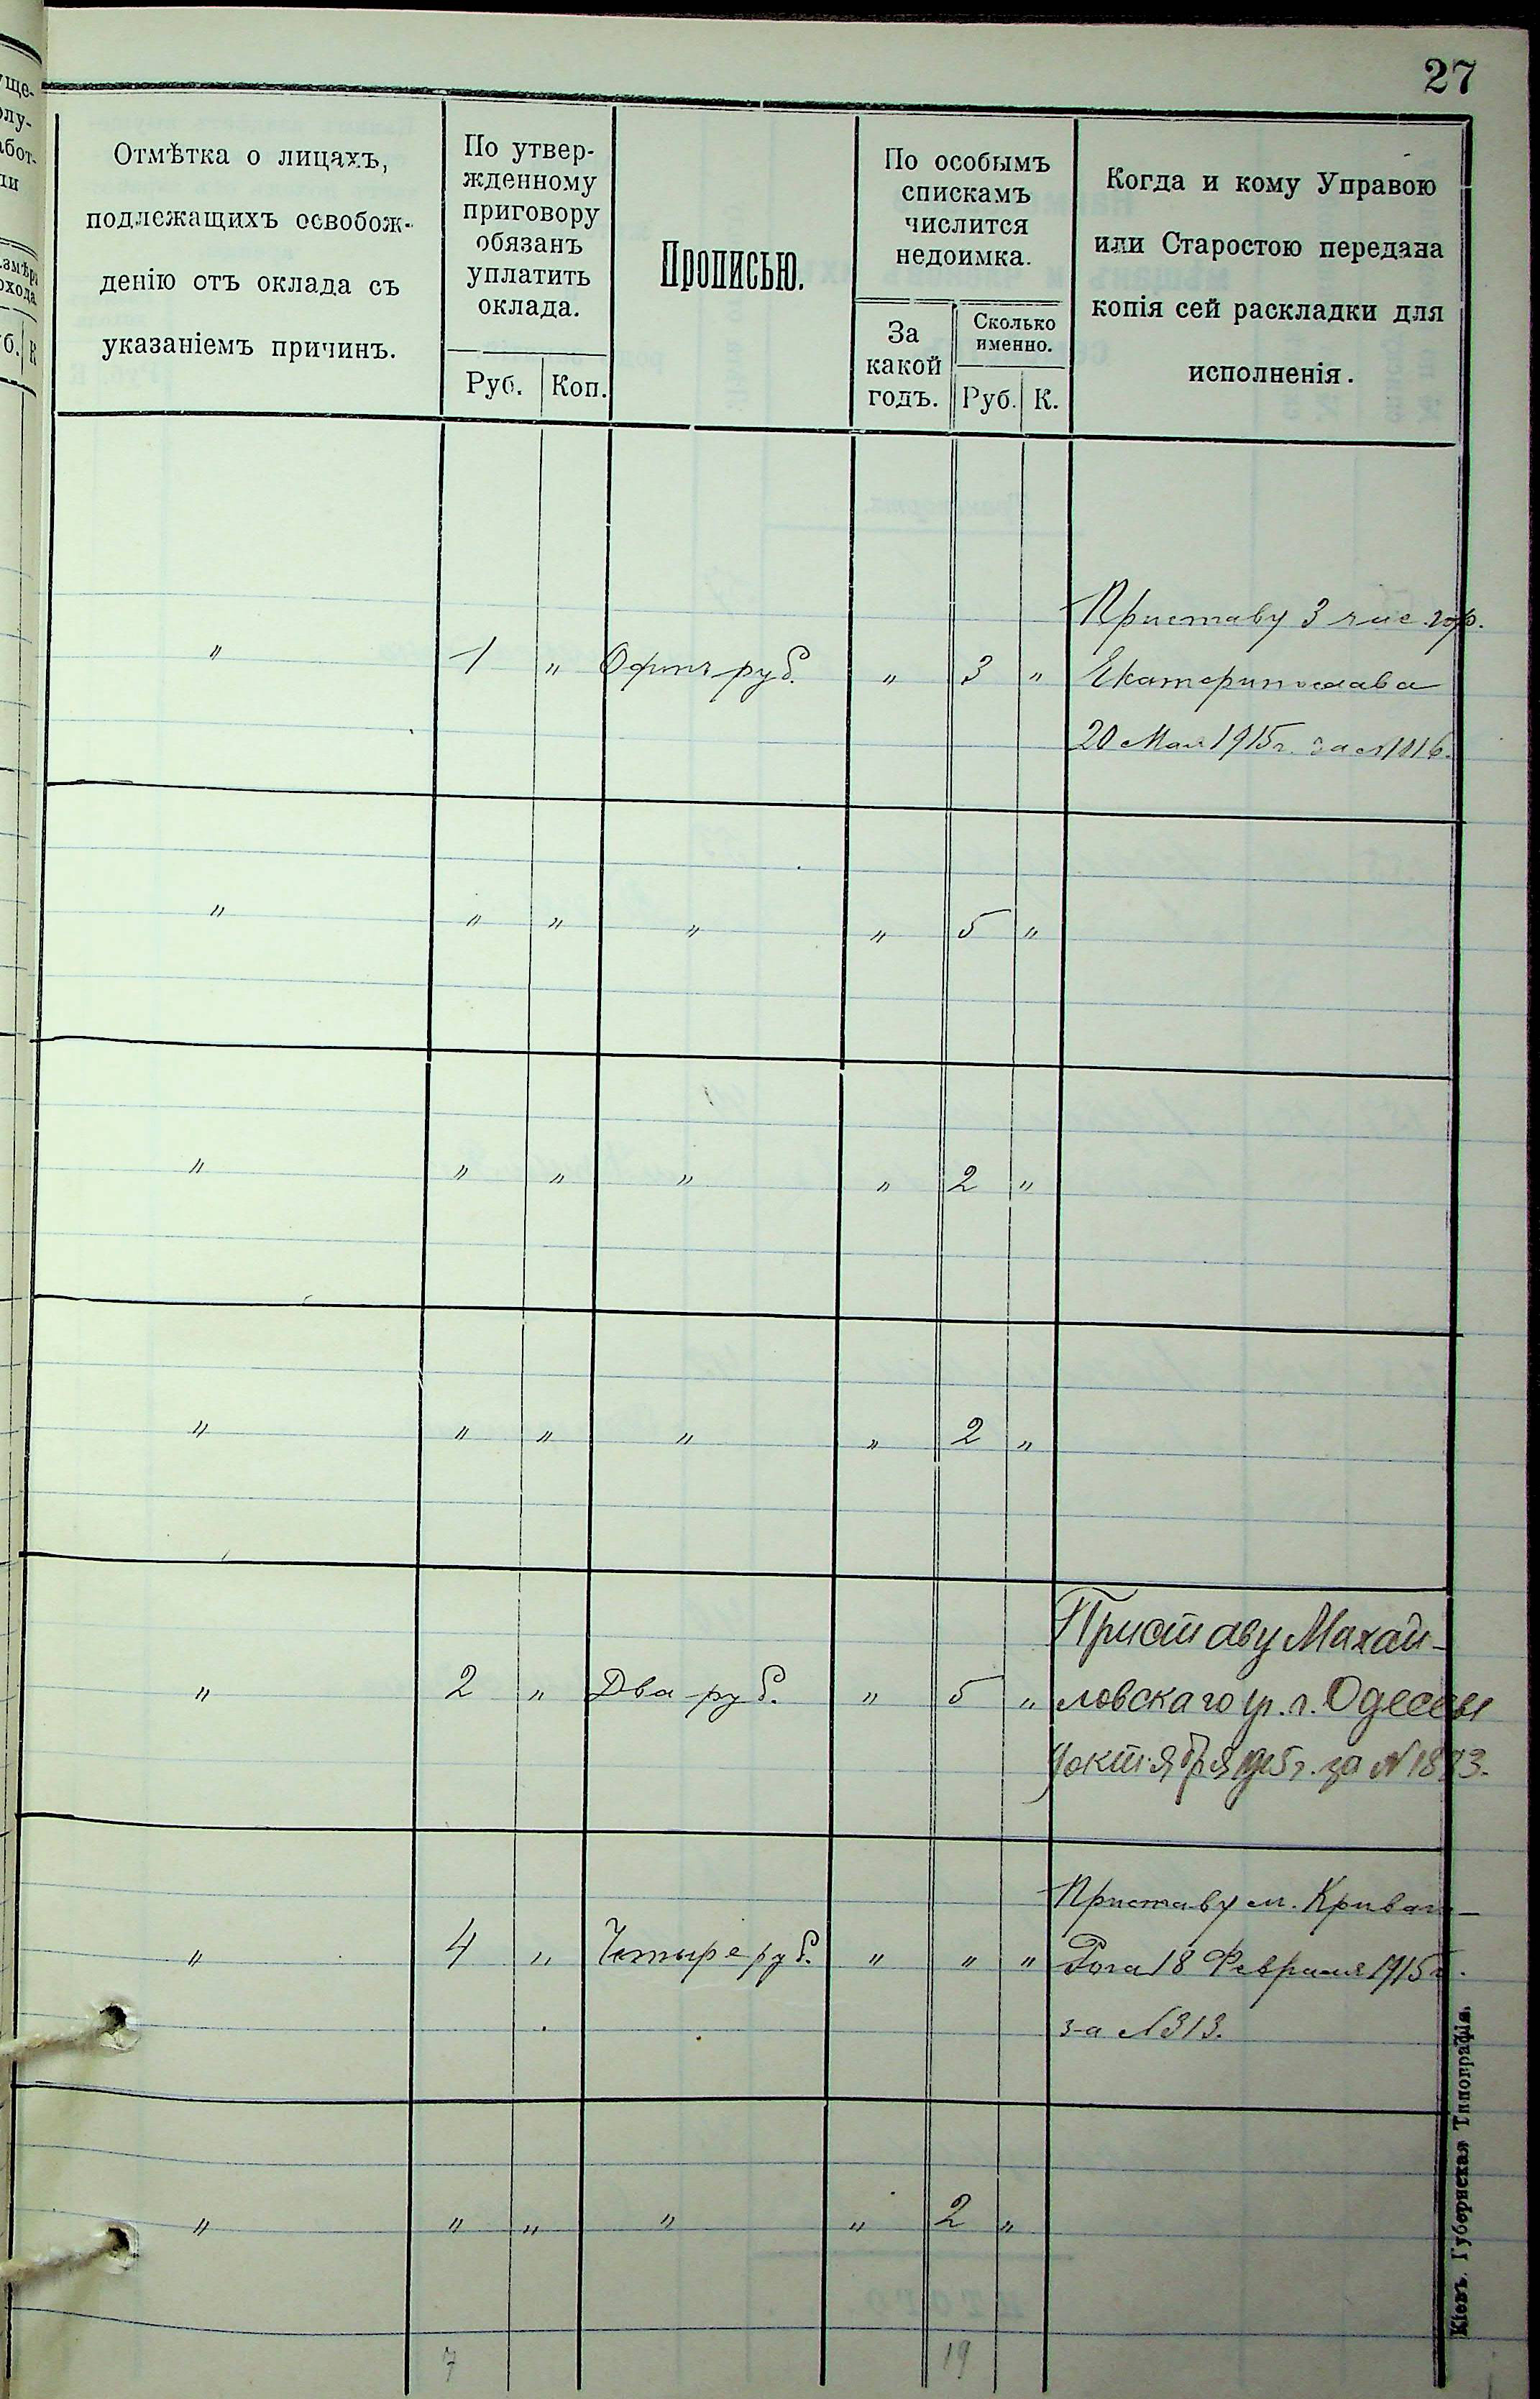 27
Отмѣтка о лицахъ,
подлежащихъ освобож-
денію отъ оклада съ
указаніемъ причинъ.
По утвер-
жденному
приговору
обязанъ
уплатить
оклада.
Руб.
Коп.
Прописью.
По особымъ
спискамъ
числится
недоимка.
За
какой
годъ.
Сколько
именно.
Руб.
К.
Когда и кому Управою
или Старостою передана
копія сей раскладки для
исполненія.
" 1 " Одинъ руб. " 3 "
Приставу 3 час. гор.
Екатеринослава
20 Мая 1915г. за №1016.
" " " " " 5 "
" " " " " 2 "
" " " " " 2 "
" 2 " Два руб. " 5 "
Приставу Махай-
ловскаго уч. г. Одессы
октября 1915г. за №
" 4 " Четыре руб. " " "
Приставу м. Кривой-
Рога 18 Февраля 1915г.
за №313.
" " " " " 2 "
7 19
Кіевъ. Губернская Типографія.